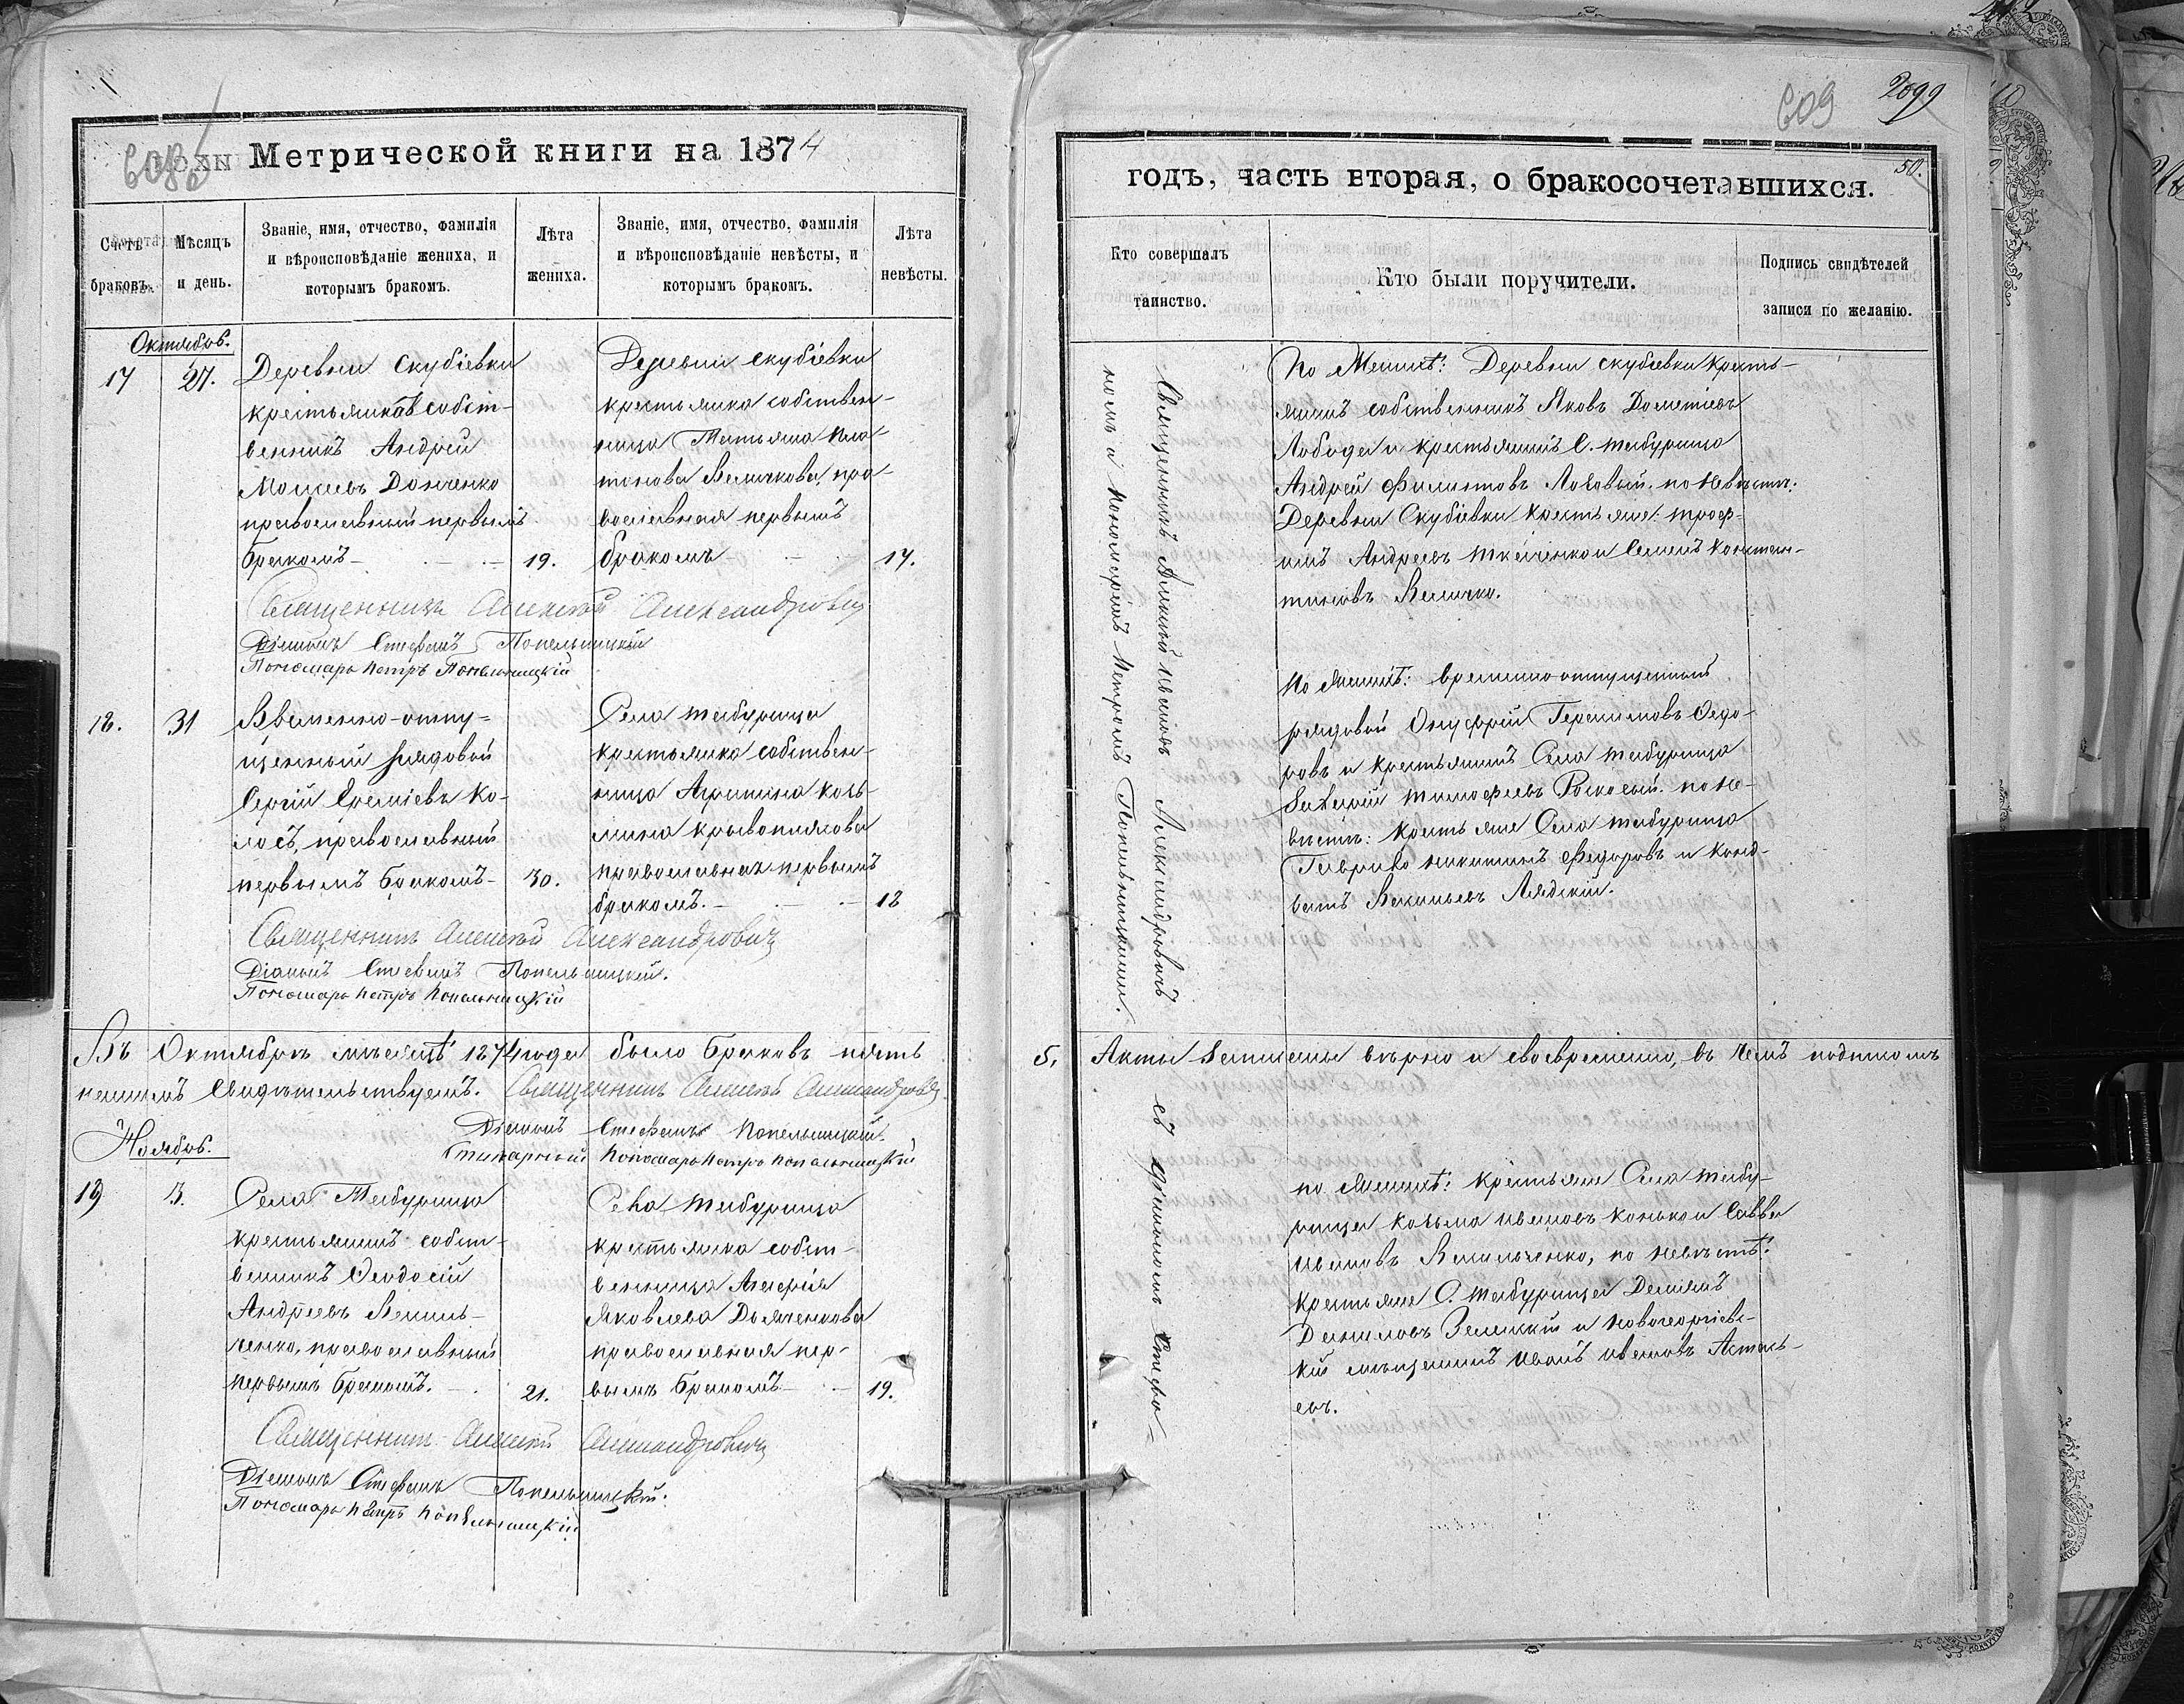 Метрической книги на 1874
Счетъ браковъ.
Мѣсяцъ и день.
Званіе, имя, отчество, фамилія
и вѣроисповѣданіе жениха, и
которымъ бракомъ.
Лѣта жениха.
Званіе, имя, отчество, фамилія
и вѣроисповѣданіе невѣсты, и
которымъ бракомъ.
Лѣта невѣсты.
Октябрь.
17
27.
Деревни Скубіевки
крестьянинъ собст-
венникъ Андрей
Моисеевъ Донченко
православный первымъ
бракомъ
19.
Деревни Скубіевки
крестьянка собствен-
ница Татьяна Пла-
тонова Величкова, пра-
вославная первымъ
бракомъ
17.
Священникъ Алексій Александровъ
Діаконъ Стефанъ Попельницкій
Пономарь Петръ Попельницкій
18.
31
Временно-отпу-
щенный рядовой
Сергій Ереміевъ Ко-
лосъ, православный
первымъ бракомъ
30.
Села Табурища
крестьянка собствен-
ница Агрипина Козь-
мина Кривоплясова
православная первымъ
бракомъ.
18
Священникъ Алексій Александровичъ
Діаконъ Стефанъ Попельницкій.
Пономарь Петръ Попельницкій
Въ Октябрѣ мѣсяцѣ 1874 года было браковъ пять
нашимъ свидѣтельствуемъ. Священникъ Алексій Александровъ
Діаконъ Стефанъ Попельницкій.
Пономарь Петръ Попельницкій
Ноябрь.
19
3.
Села Табурища
крестьянинъ собст-
венникъ Ѳеодосій
Андреевъ Василь-
ченко, православный
первымъ бракомъ.
21.
Села Табурища
крестьянка собст-
венница
Яковлева Дьяченкова
православная пер-
вымъ бракомъ
19.
Священникъ Алексій Александровичъ
Діаконъ Стефанъ Попельницкій.
Пономарь Петръ Попельницкій
609
2099
50.
годъ, часть вторая, о бракосочетавшихся.
Кто совершалъ таинство.
Кто были поручители.
Подпись свидѣтелей
записи по желанію.
Священникъ Алексій Ивановъ Александровичъ съ діакономъ Стефа-
номъ и пономаремъ Петромъ Попельницкими.
По женихѣ: Деревни Скубіевки кресть-
янинъ собственникъ Яковъ Дометіевъ
Лобода и крестьянинъ С. Табурища
Андрей Филиповъ Лозовый. по невѣстѣ:
Деревни Скубіевки крестьяне: Троф-
имъ Андреевъ Ткаченко и Семенъ Констан-
тиновъ Величко.
По женихѣ: временно-отпущенный
рядовой Онуфрій Герасимовъ Ѳедо-
ровъ и крестьянинъ Села Табурища
Тимофеевъ по не-
вѣстѣ: крестьяне Села Табурища
Гаврило Никитинъ Федоровъ и Конд-
ратъ Васильевъ Лядскій.
5. Акты записаны вѣрно и своевременно, въ чемъ подписомъ
по женихѣ: крестьяне Села Табу-
рища Козьма Ивановъ Конько и Савва
Ивановъ Васильченко, по невѣстѣ:
крестьяне С. Табурища Демянъ
Даниловъ Зелецкій и Новогеоргіевс-
кій мѣщанинъ Иванъ Ивановъ Астась-
евъ.